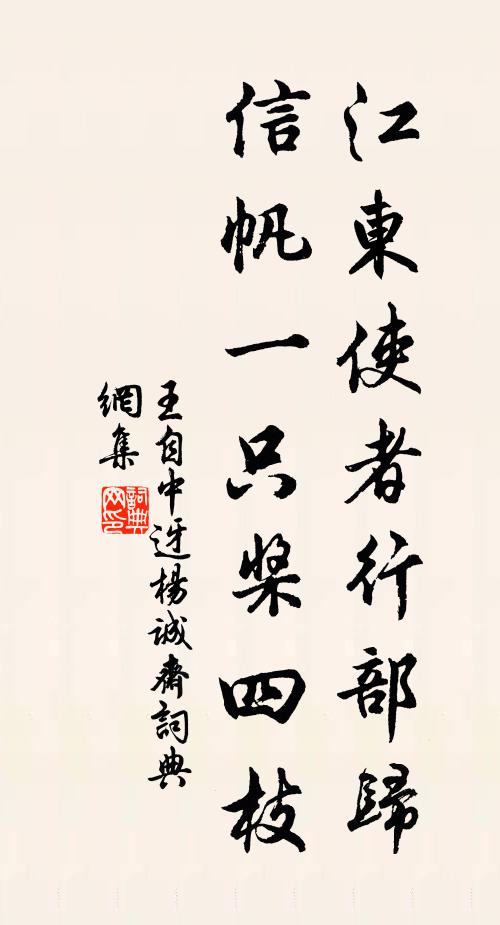 江東使者行部歸
信帆一只槳四枝
王自中迓楊誠齋詞典
網集
詞典
网印